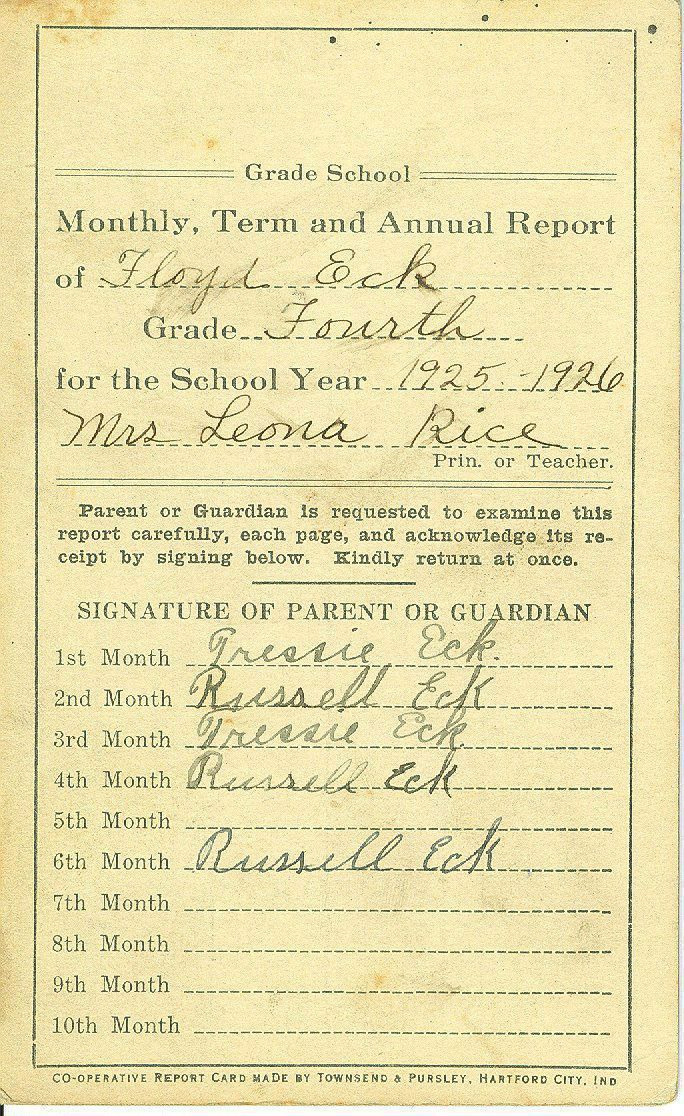 Grade School
Monthly, Term and Annual Report
of Floyd Eck
Grade Fourth
for the School Year 1925-1926
Mrs Leona Rice
Prin. or Teacher.
Parent or Guardian is requested to examine this
report carefully, each page, and acknowledge its re-
ceipt by signing below. Kindly return at once.
SIGNATURE OF PARENT OR GUARDIAN
1st Month Tressie Eck.
2nd Month Russell Eck
3rd Month Tressie Eck
4th Month Russell Eck
5th Month
6th Month Russell Eck
7th Month
8th Month
9th Month
10th Month
CO-OPERATIVE REPORT CARD MADE BY TOWNSEND & PURSLEY, HARTFORD CITY, IND